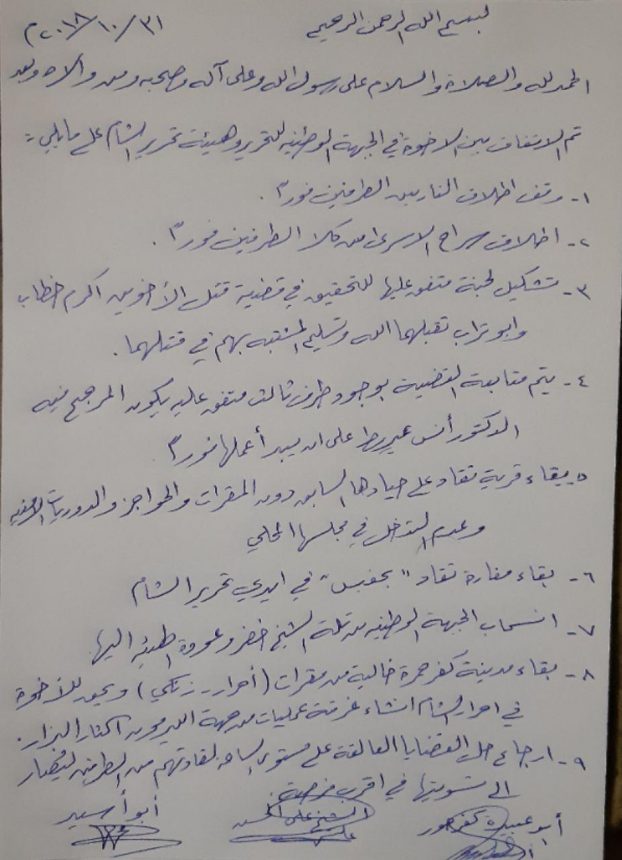 بسم الله الرحمن الرحيم ٢٠١٨/١٠/٣١م
الحمد لله والصلاة والسلام على رسول الله وعلى آله وصحبه ومن والاه وبعد
تم الاتفاق بين الاخوة في الجبهة الوطنية للتحرير وهيئة تحرير الشام على مايلي :
١- وقف اطلاق النار بين الطرفين فوراً .
٢- اطلاق سراح الاسرى من كلا الطرفين فوراً .
٣- تشكيل لجنة متفق عليها للتحقيق في قضية قتل الأخوين اكرم خطاب
وابو تراب تقبلهما الله وتسليم المشتبه بهم في قتلهما .
٤- يتم متابعة القضية بوجود طرف ثالث متفق عليه يكون المرجح فيه
الدكتور أنس عيروط على ان يبدأ عملها فوراً
٥- بقاء قرية تقاد على حيادها السابق دون المقرات والحواجز والدوريات
وعدم التدخل في مجلسها المحلي
٦- بقاء مغارة تقاد "بحفيس" في ايدي تحرير الشام
٧- انسحاب الجبهة الوطنية من تلة الشيخ خضر وعودة اليها.
٨- بقاء مدينة كفرحمرة خالية من مقرات (أحرار - زنكي) ويحق للأخوة
في احرار الشام انشاء غرفة عمليات من جهة
٩- ارجاع حل القضايا العالقة على مستوى الساحة لقادتهم من الطرفين ليصار
الى تسويتها في اقرب فرصة
أبو عبيدة الشيخ علي أبو أسيد